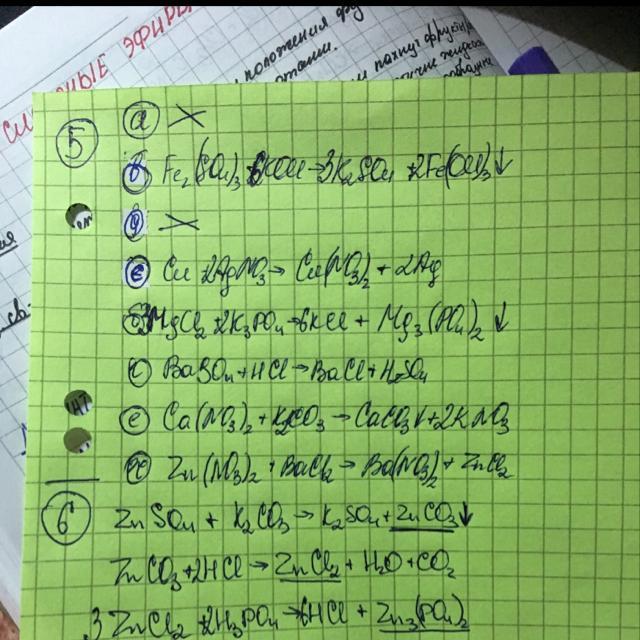 положения фу
СЛ ЫЕ ЭФИРЫ
пахнут фрукта
5 а ×
б Fe₂(SO₄)₃ + 6KOH → 3K₂SO₄ + 2Fe(OH)₃↓
д ×
е Cu + 2AgNO₃ → Cu(NO₃)₂ + 2Ag
б 3MgCl₂ + 2K₃PO₄ → 6KCl + Mg₃(PO₄)₂↓
BaSO₄ + HCl → BaCl + H₂SO₄
е Ca(NO₃)₂ + K₂CO₃ → CaCO₃↓ + 2KNO₃
ж Zn(NO₃)₂ + BaCl₂ → Ba(NO₃)₂ + ZnCl₂
6 ZnSO₄ + K₂CO₃ → K₂SO₄ + ZnCO₃↓
ZnCO₃ + 2HCl → ZnCl₂ + H₂O + CO₂
3ZnCl₂ + 2H₃PO₄ → 6HCl + Zn₃(PO₄)₂